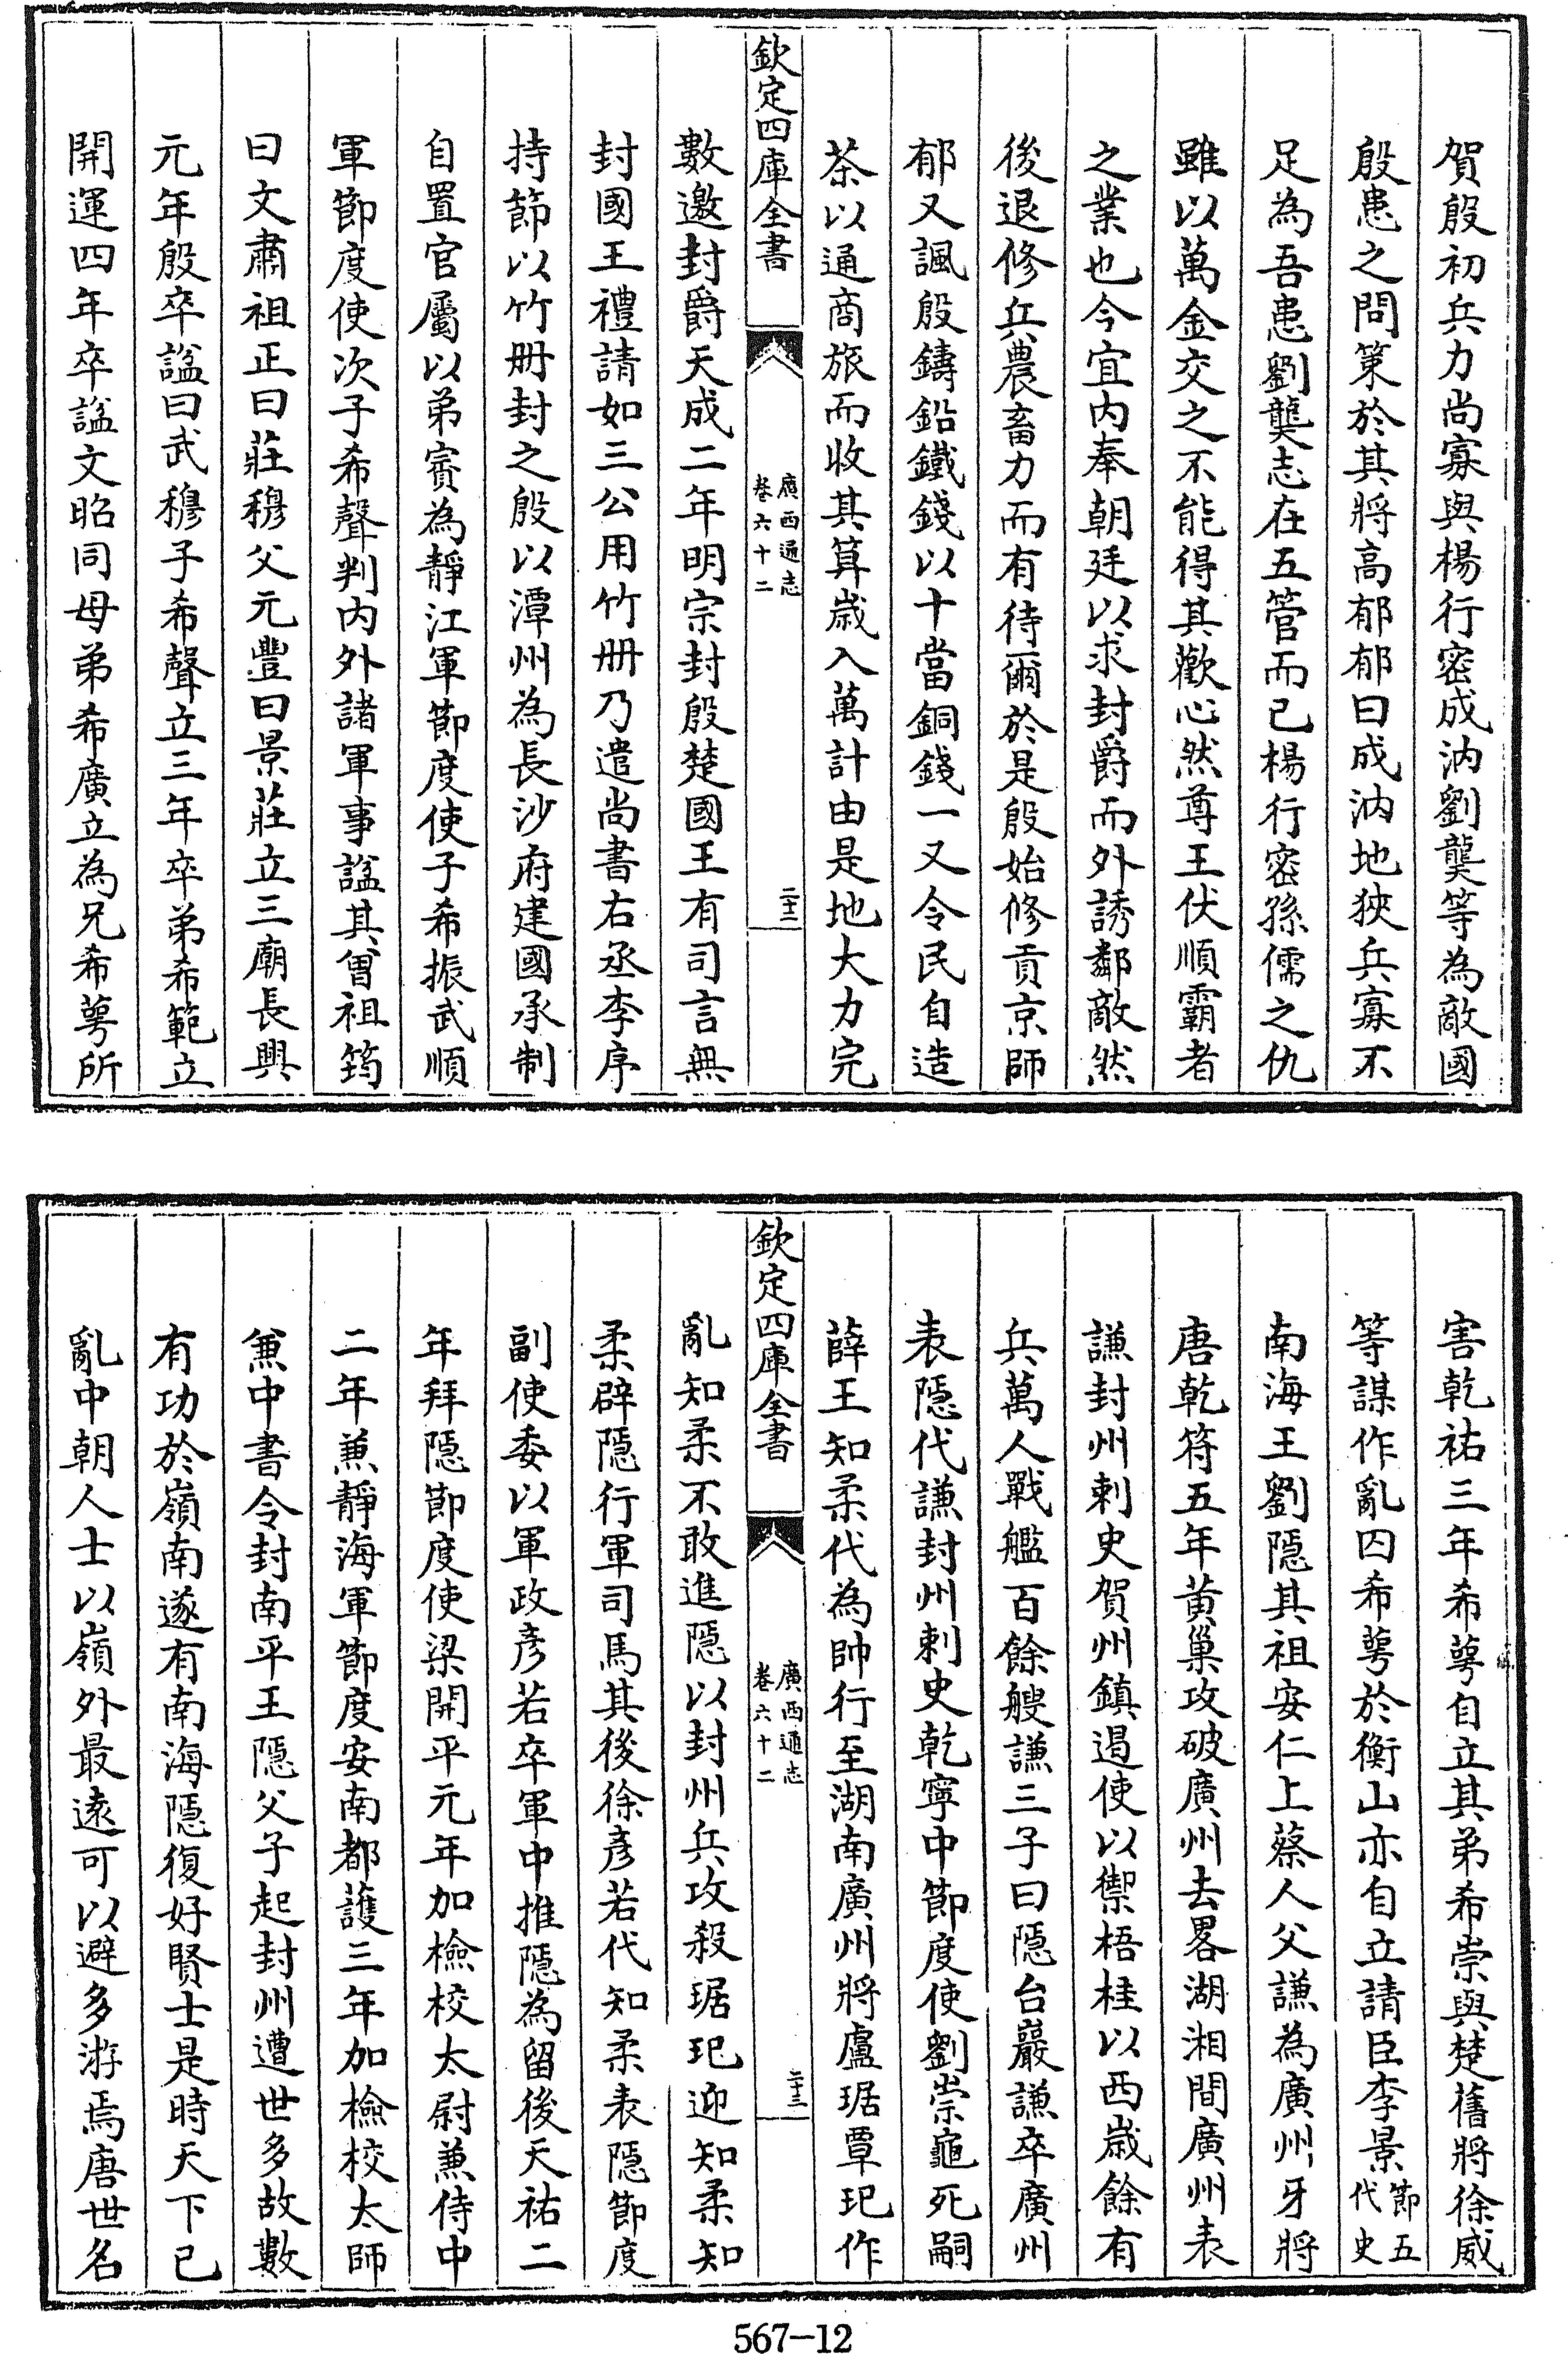 賀殷初兵力尚寡與楊行密成汭劉龑等為敵國
殷患之問策於其將高郁郁曰成汭地狹兵寡不
足為吾患劉龑志在五管而已楊行密孫儒之仇
雖以萬金交之不能得其歡心然尊王伏順霸者
之業也今宜内奉朝廷以求封爵而外誘鄰敵然
後退修兵農畜力而有待爾於是殷始修貢京師
郁又諷殷鑄鉛鐵錢以十當銅錢一又令民自造
茶以通商旅而收其算歳入萬計由是地大力完
欽定四庫全書
廣西通志
卷六十二
二十二
數邀封爵天成二年明宗封殷楚國王有司言無
封國王禮請如三公用竹册乃遣尚書右丞李序
持節以竹册封之殷以潭州為長沙府建國承制
自置官屬以弟賓為靜江軍節度使子希振武順
軍節度使次子希聲判内外諸軍事謚其曾祖筠
曰文肅祖正曰莊穆父元豐曰景莊立三廟長興
元年殷卒謚曰武穆子希聲立三年卒弟希範立
開運四年卒謚文昭同母弟希廣立為兄希萼所
害乾祐三年希萼自立其弟希崇與楚舊將徐威
等謀作亂囚希萼於衡山亦自立請臣李景節五
代史
南海王劉隱其祖安仁上蔡人父謙為廣州牙將
唐乾符五年黄巢攻破廣州去畧湖湘間廣州表
謙封州刺史賀州鎮遏使以禦梧桂以西歳餘有
兵萬人戰艦百餘艘謙三子曰隱台巖謙卒廣州
表隱代謙封州刺史乾寧中節度使劉崇龜死嗣
薛王知柔代為帥行至湖南廣州將盧琚覃玘作
欽定四庫全書
廣西通志
卷六十二
二十三
亂知柔不敢進隱以封州兵攻殺琚玘迎知柔知
柔辟隱行軍司馬其後徐彦若代知柔表隱節度
副使委以軍政彦若卒軍中推隱為留後天祐二
年拜隱節度使梁開平元年加檢校太尉兼侍中
二年兼靜海軍節度安南都護三年加檢校太師
兼中書令封南平王隱父子起封州遭世多故數
有功於嶺南遂有南海隱復好賢士是時天下已
亂中朝人士以嶺外最逺可以避多游焉唐世名
567-12